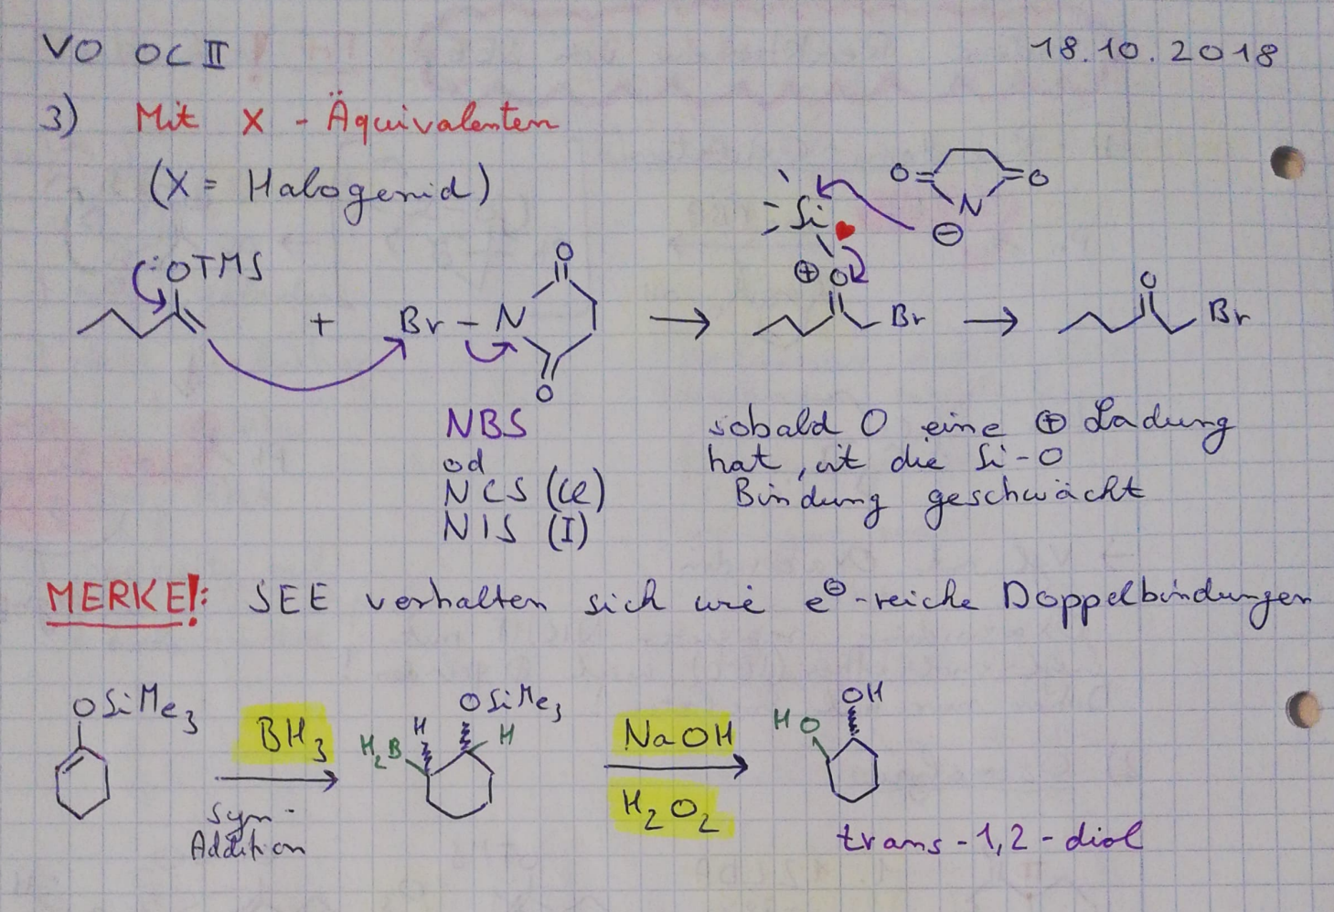 VO OC II 18.10.2018
3) Mit X - Äquivalenten
(X = Halogenid)
O= =O
Si N ⊖
:OTMS O ⊕ O O
+ Br - N → Br → Br
O
NBS
od
NCS (Cl)
NIS (I)
sobald O eine ⊕ Ladung
hat, ist die Si-O
Bindung geschwächt
MERKE!: SEE verhalten sich wie e⊖-reiche Doppelbindungen
OSiMe3 BH3 H2B H OSiMe3 H NaOH HO OH
Syn - H2O2
Addition
trans-1,2-diol